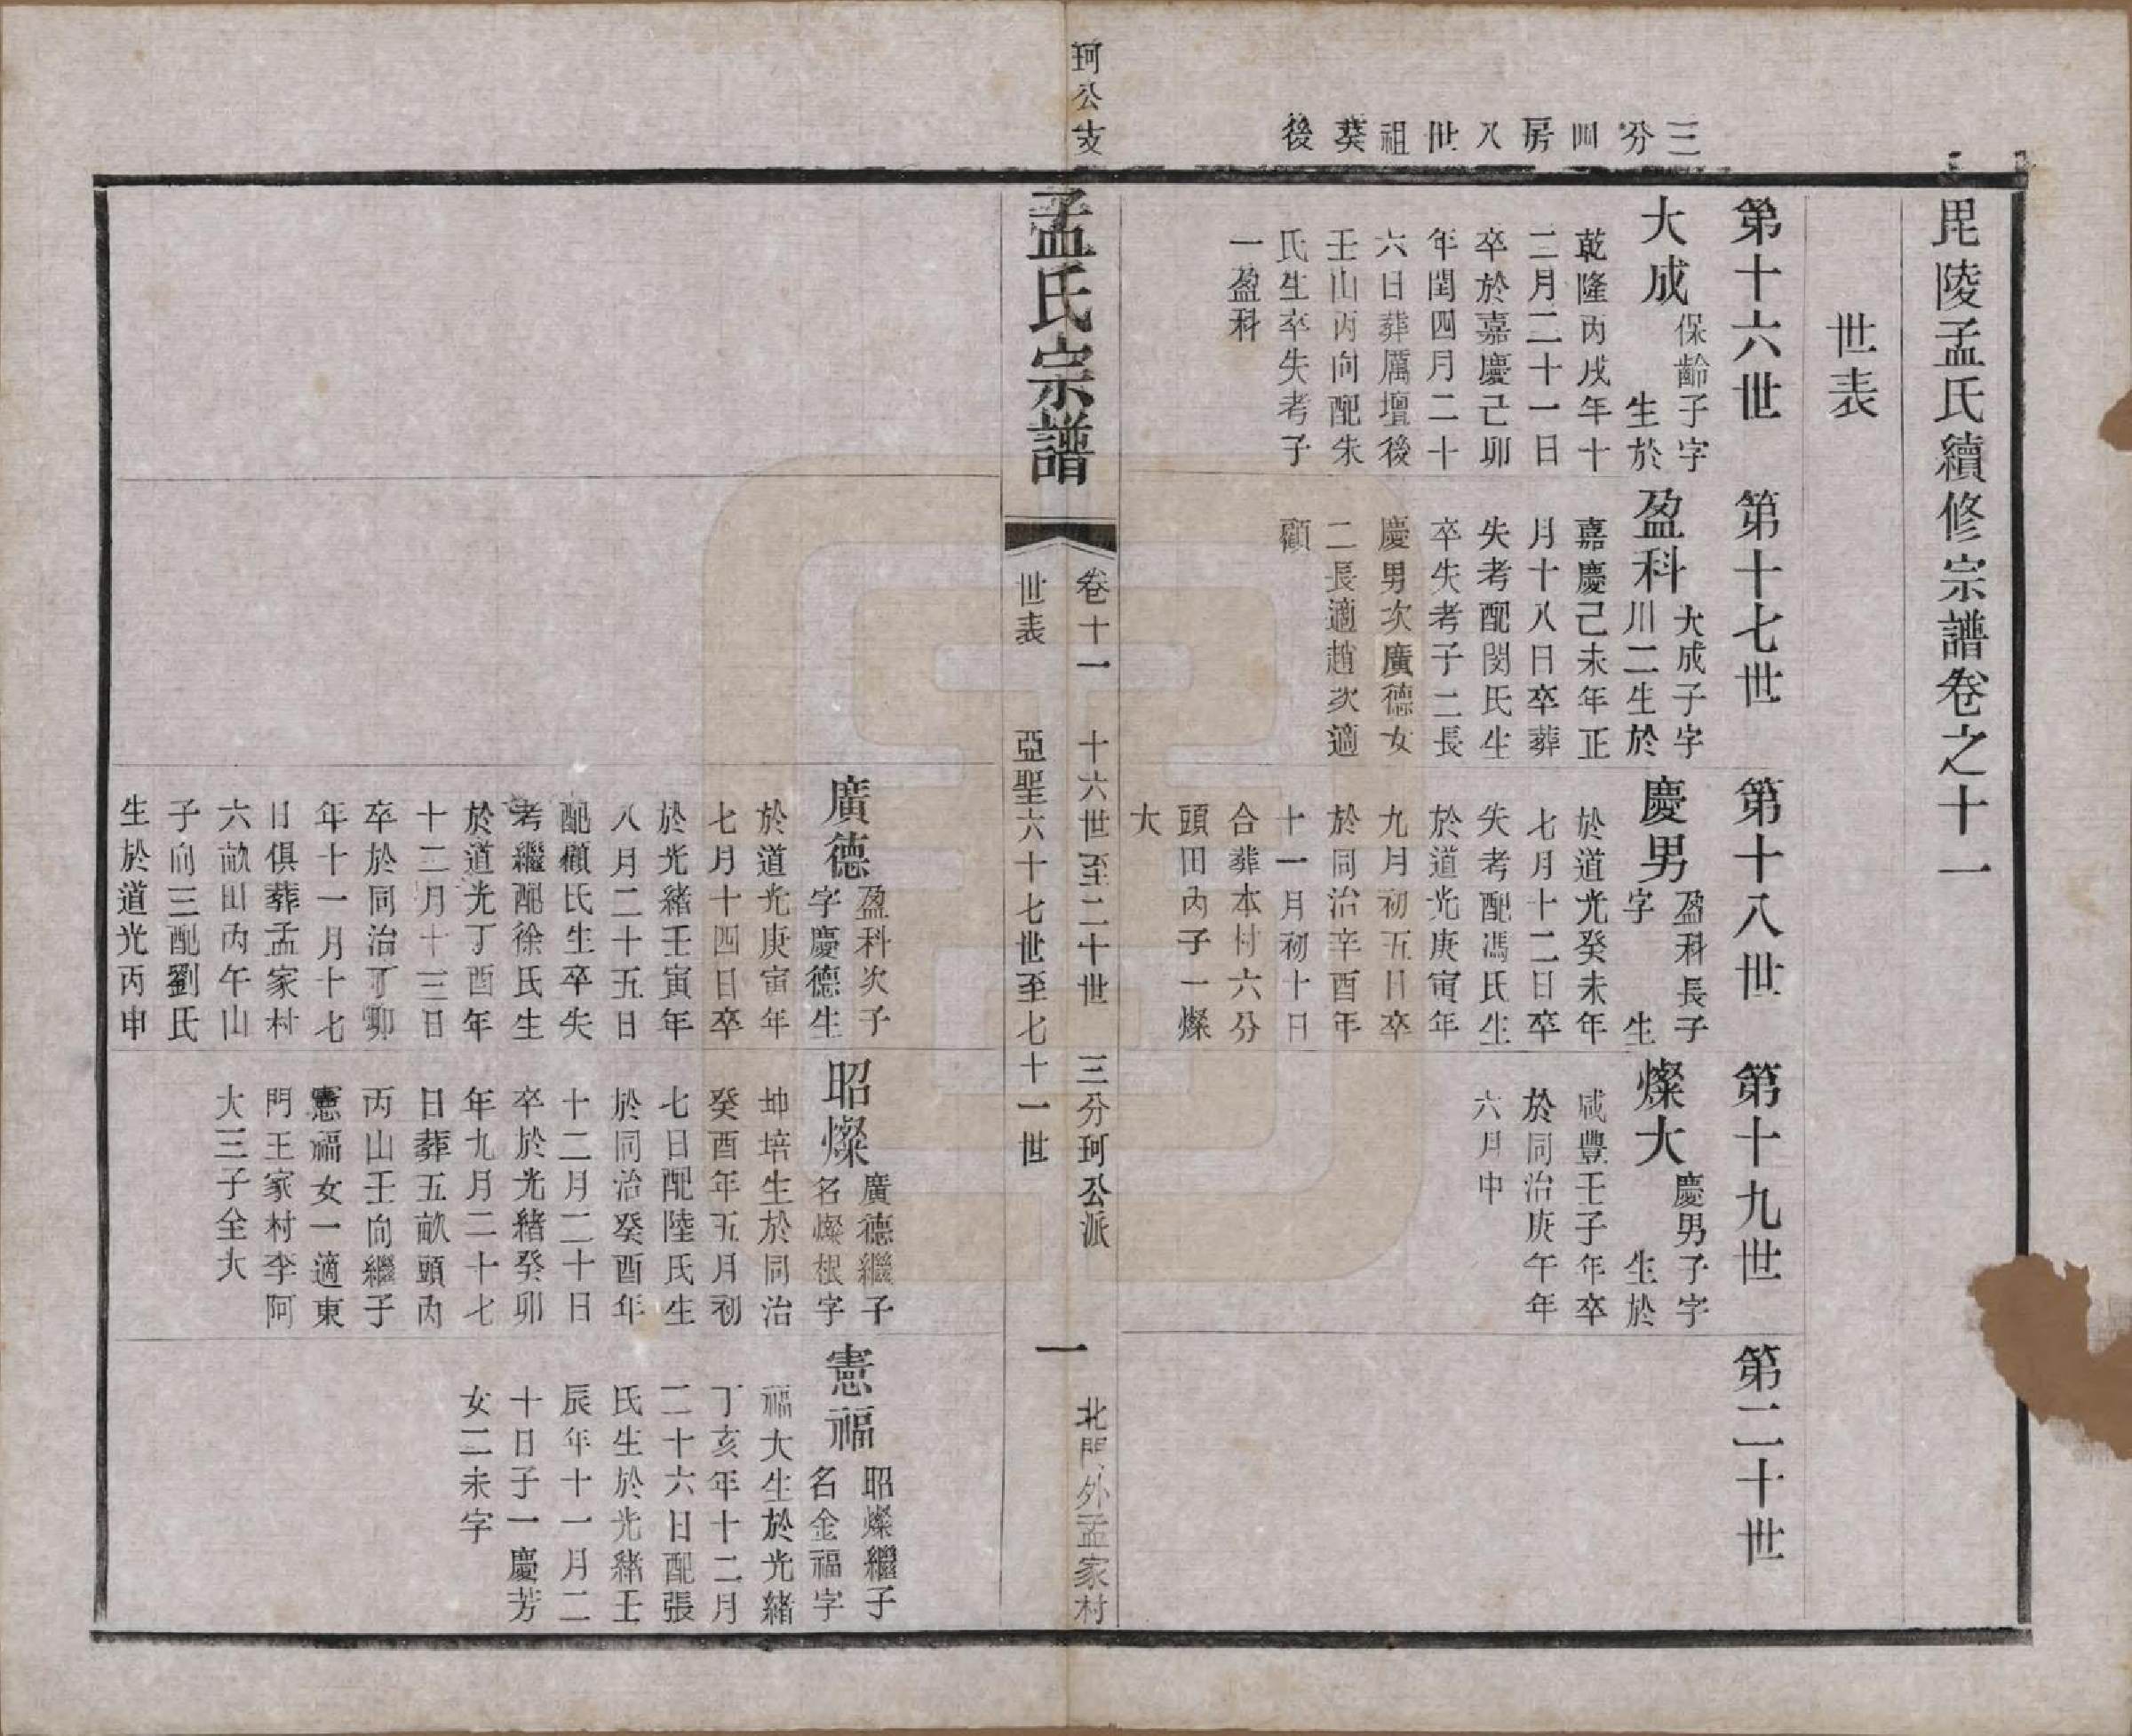 毘陵孟氏續修宗譜卷之十一
世表
三分四房八世祖葵後
第十六世
大成
保齡子字
生於
乾隆丙戌年十
二月二十一日
卒於嘉慶己卯
年閏四月二十
六日葬厲壇後
壬山丙向配朱
氏生卒失考子
一盈科
第十七世
盈科
大成子字
川二生於
嘉慶己未年正
月十八日卒葬
失考配閔氏生
卒失考子二長
慶男次廣德女
二長適趙次適
顧
第十八世
慶男
盈科長子
字 生
於道光癸未年
七月十二日卒
失考配馮氏生
於道光庚寅年
九月初五日卒
於同治辛酉年
十一月初十日
合葬本村六分
頭田內子一燦
大
第十九世
燦大
慶男子字
生於
咸豐壬子年卒
於同治庚午年
六月中
第二十世
珂公支
孟氏宗譜
卷十一 十六世至二十世 三分珂公派 北門外孟家村
世表 亞聖六十七世至七十一世
一
廣德
盈科次子
字慶德生
於道光庚寅年
七月十四日卒
於光緒壬寅年
八月二十五日
配顧氏生卒失
考繼配徐氏生
於道光丁酉年
十二月十三日
卒於同治丁卯
年十一月十七
日俱葬孟家村
六畝田丙午山
子向三配劉氏
生於道光丙申
昭燦
廣德繼子
名燦根字
坤培生於同治
癸酉年五月初
七日配陸氏生
於同治癸酉年
十二月二十日
卒於光緒癸卯
年九月二十七
日葬五畝頭內
丙山壬向繼子
憲福女一適東
門王家村李阿
大三子全大
憲福
昭燦繼子
名金福字
福大生於光緒
丁亥年十二月
二十六日配張
氏生於光緒壬
辰年十一月二
十日子一慶芳
女二未字